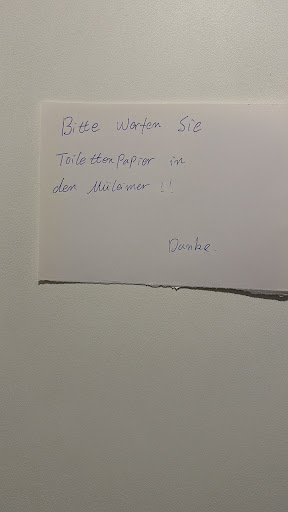 Bitte werfen Sie
Toilettenpapier in
den Mülamer !!
Danke.